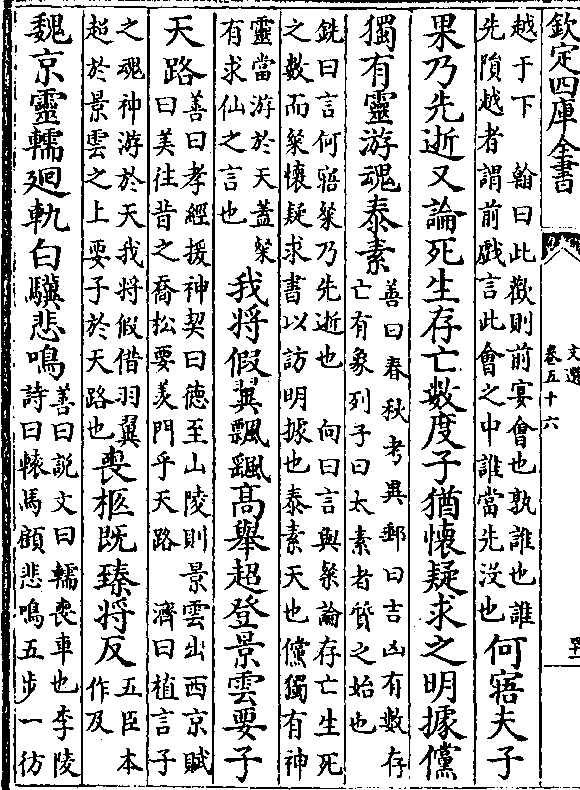 欽定四庫全書
文選
卷五十六
越于下　翰曰此歡則前宴會也孰誰也誰
先隕越者謂前戯言此會之中誰當先没也
何寤夫子
果乃先逝又論死生存亡數度子猶懷疑求之明據儻
獨有靈游魂泰素
善曰春秋考異郵曰吉凶有數存
亡有象列子曰太素者質之始也
銑曰言何寤粲乃先逝也　向曰言與粲論存亡生死
之數而粲懷疑求書以訪明據也泰素天也儻獨有神
靈當游於天蓋粲
有求仙之言也
我將假翼飄颻髙舉超登景雲要子
天路
善曰孝經援神契曰德至山陵則景雲出西京賦
曰美往昔之喬松要羨門乎天路　濟曰植言子
之魂神游於天我將假借羽翼
超於景雲之上要子於天路也
喪柩既臻將反
五臣本
作及
魏京靈轜廻軌白驥悲鳴
善曰說文曰轜喪車也李陵
詩曰轅馬顧悲鳴五步一彷